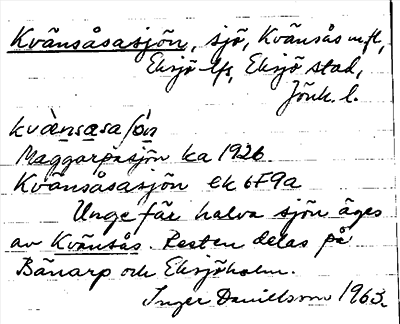 Kvänsåsasjön, sjö, Kvänsås m.fl.,
Eksjö lfs, Eksjö stad,
Jönk. l.
kvæ̀nsasaʃön
Maggarpasjön ka 1926
Kvänsåsasjön ek 6F9a
Ungefär halva sjön äges
av Kvänsås. Resten delas på
Bänarp och Eksjöholm.
Inger Danielsson 1963.